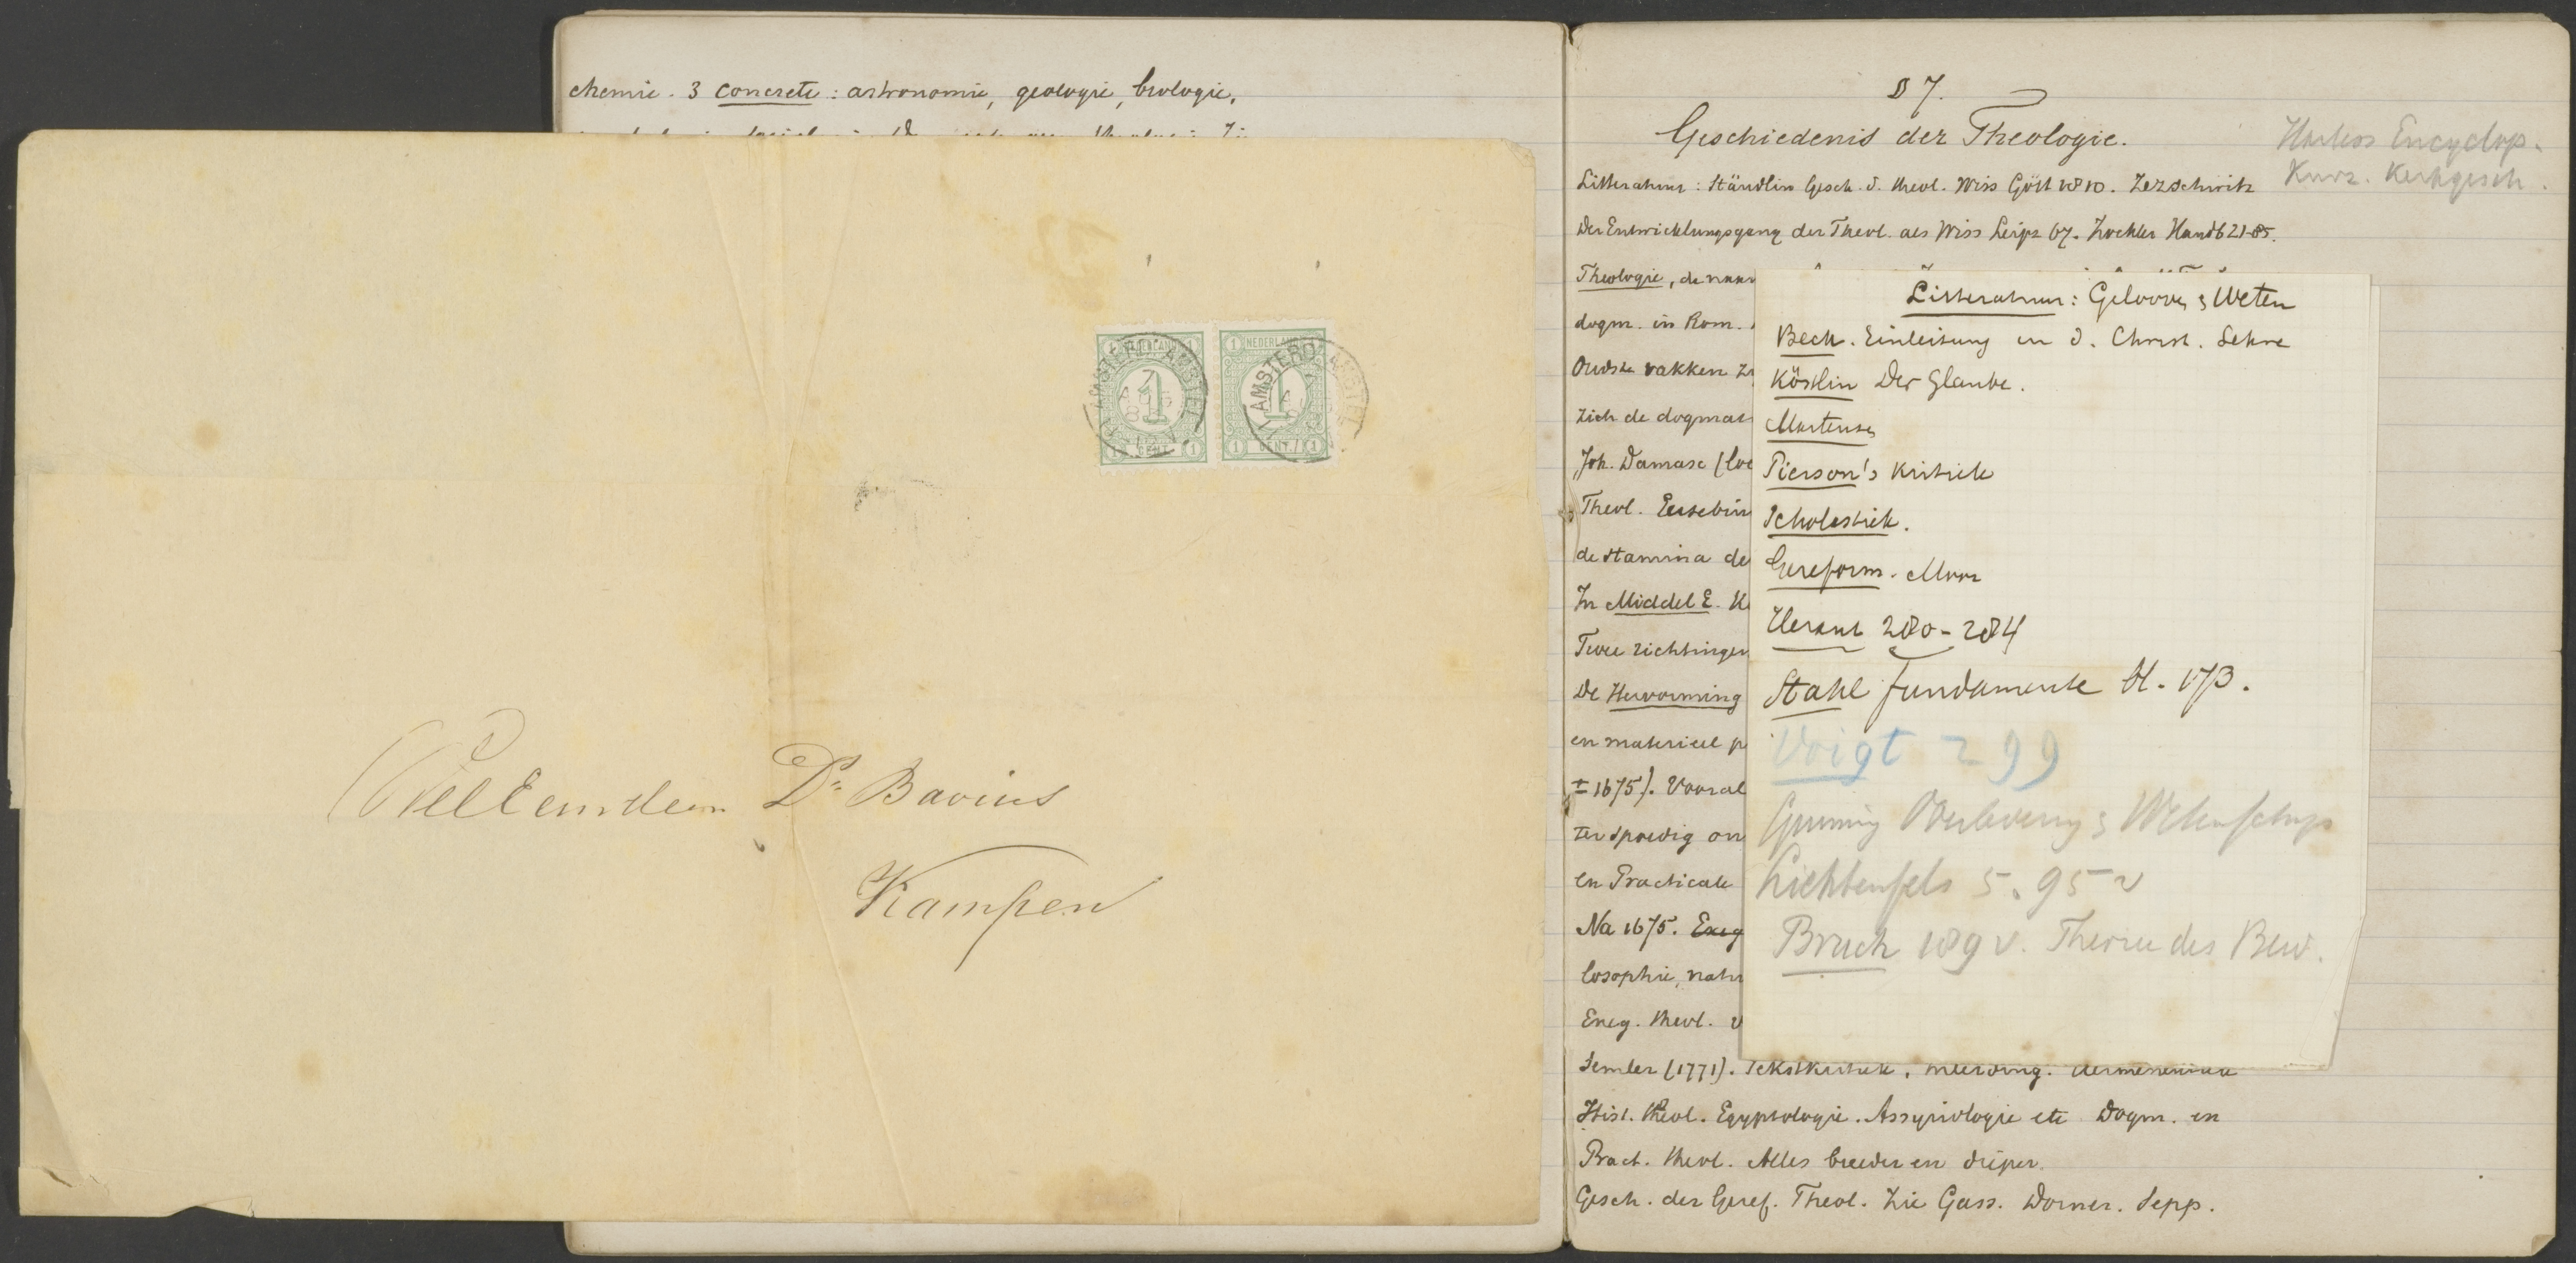 chemie. 3 concrete: astronomie, geologie, biologie,
NEDERLAND
1 CENT
NEDERLAND
1 CENT
AMSTERD: AMSTEL
AMSTERD: AMSTEL
WelEerw heer Dr. Bavins
Kampen
§ 7.
Geschiedenis der Theologie.
Harless Encyclop.
Kurz. Kerkgesch.
Litteratuur: Stäudlin Gesch. d. theol. Wiss Gött 1810. Zezschwitz
Der Entwicklungsgang der Theol. als Wiss Leipz 67. Zöckler Handb 21-85.
Theologie, de naam
dogm. in Rom.
Oudste vakken
zich de dogmat
Joh. Damasc (
Theol. Eusebius
de stamina de
In Middel E.
Twee richtingen
De Hervorming
en materieel
± 1675). Vooral
ter spoedig
en Practicale
Na 1675. Exeg
losophie, natu
Exeg. theol.
Semler (1771). Tekstkritiek,
Hist. theol. Egyptologie. Assyriologie etc Dogm. en
Pract. theol. Alles breeder en dieper.
Gesch. der Geref. Theol. Zie Gass. Dorner. Sepp.
Litteratuur: Gelooven & Weten
Beck. Einleitung in d. Christ. Lehre
Köstlin Der Glaube.
Martensen
Pierson's kritiek
Scholastiek.
Gereform. Moor
Heraut 280-284
Stahl fundamente bl. 173.
Voigt 299
Gunning Overlevering & Wetenschap
Lichtenfels 5. 95 v
Bruch 189 v. Theorie des Bew.